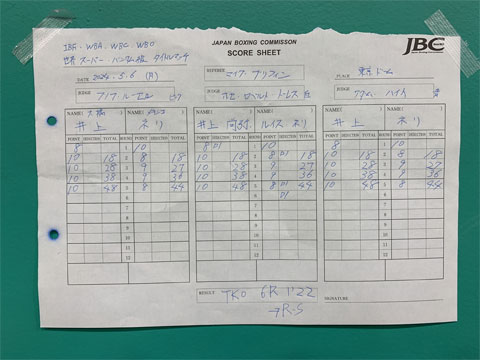 JAPAN BOXING COMMISSON
SCORE SHEET
JBC
IBF・WBA・WBC・WBO
世界スーパー・バンタム級 タイトルマッチ
DATE 2024.5.6 (月)
REFEREE マイク・グリフィン
PLACE 東京ドーム
JUDGE
JUDGE ホセ・ロベルト・トーレス
JUDGE アダム・ハイト
NAME( 大橋 ) NAME( )
井上 ネリ
NAME( ) NAME( )
井上 尚弥 ルイス ネリ
NAME( ) NAME( )
井上 ネリ
POINT DEDUCTION TOTAL ROUND POINT DEDUCTION TOTAL
POINT DEDUCTION TOTAL ROUND POINT DEDUCTION TOTAL
POINT DEDUCTION TOTAL ROUND POINT DEDUCTION TOTAL
8 1 10
8 D1 1 10
8 1 10
10 18 2 8 18
10 18 2 8 D1 18
10 18 2 8 18
10 28 3 9 27
10 28 3 9 27
10 28 3 9 27
10 38 4 9 36
10 38 4 9 36
10 38 4 9 36
10 48 5 8 44
10 48 5 8 D1 44
10 48 5 8 44
6
6 D1
6
7
7
7
8
8
8
9
9
9
10
10
10
11
11
11
12
12
12
RESULT TKO 6R 1'22
→R.S
SIGNATURE